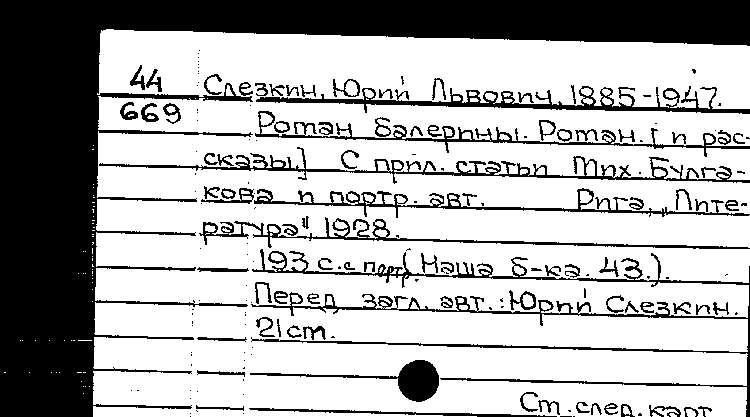 44 Слезкин, Юрий Львович, 1885-1947.
669 Роман балерины. Роман. [и рас-
сказы.] С прил. статьи Мих. Булга-
кова и портр. авт. Рига, „Лите-
ратура", 1928.
193 с. с портр. (Наша б-ка. 43.).
Перед загл. авт.: Юрий Слезкин.
21 cm.
Ст. след. карт